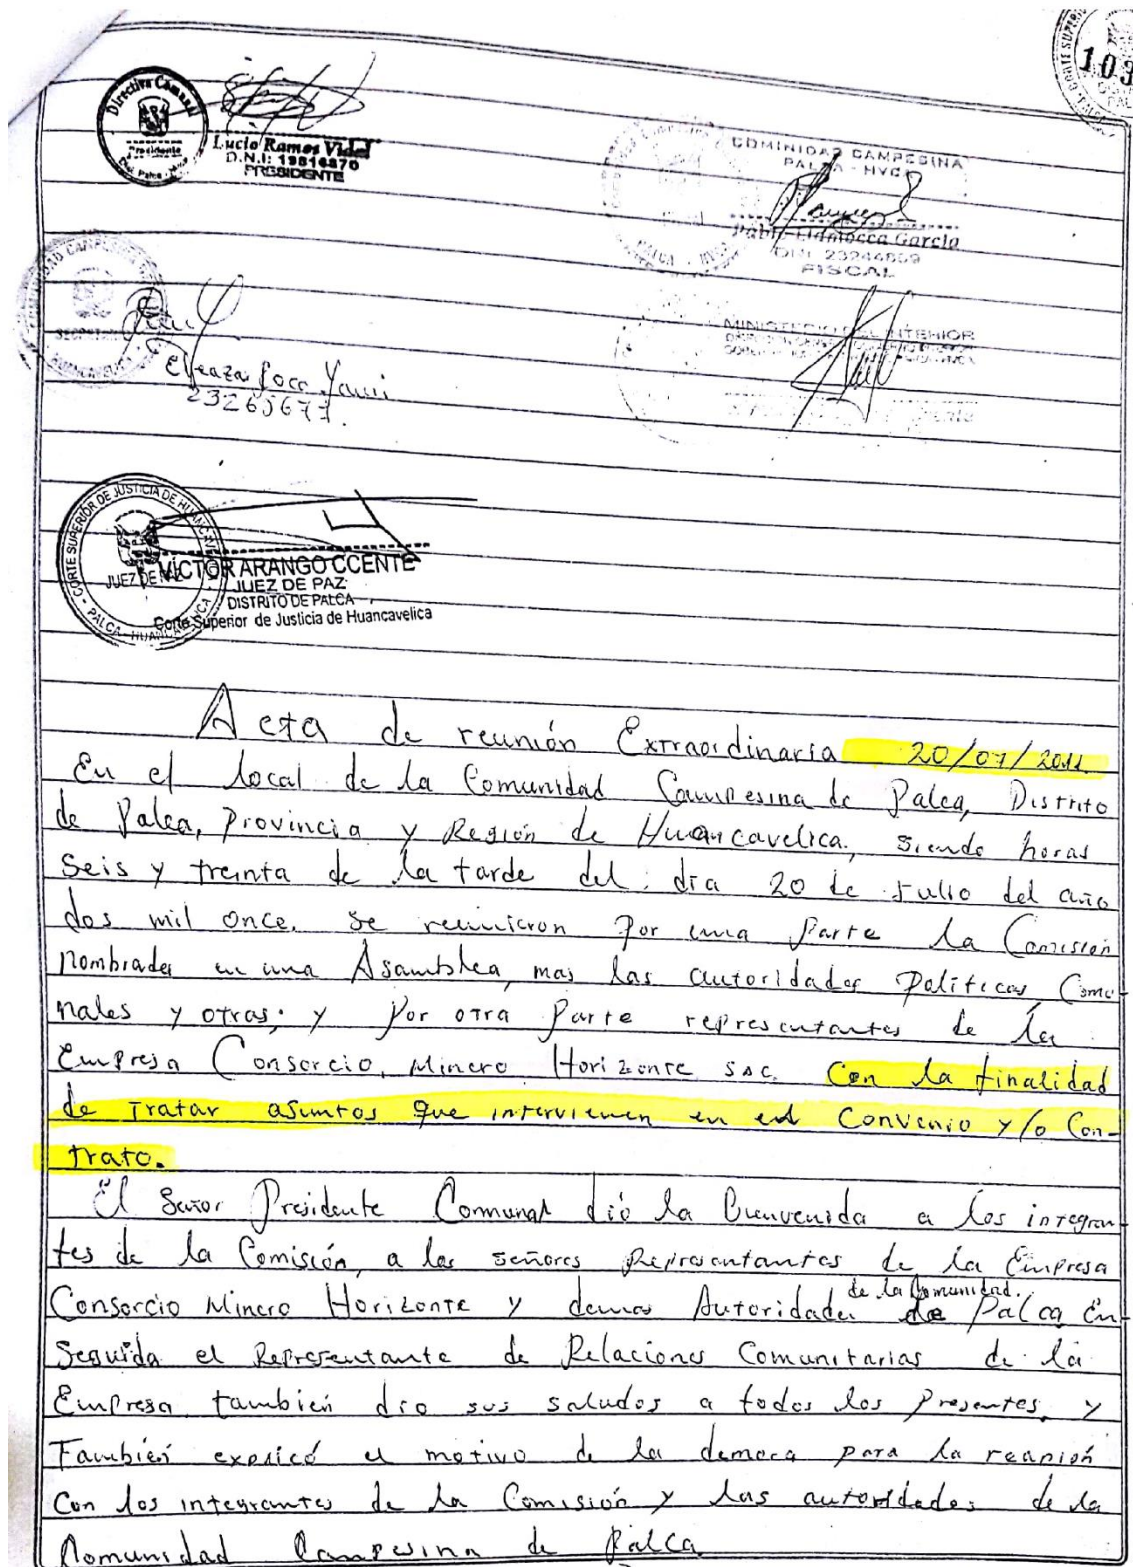 103
Directiva Comunal
Presidente
Lucio Ramos Vidal
D.N.I: 19814870
PRESIDENTE
COMINIDAD CAMPESINA
PALCA - HVCA
Pablo Lidmocca Garcia
DNI. 23244859
FISCAL
PALCA - HVCA
MINISTERIO DEL INTERIOR
Eleaza Yauri
23265677.
CORTE SUPERIOR DE JUSTICIA DE HUANCAVELICA
JUEZ DE PAZ
PALCA - HUANCAVELICA
VÍCTOR ARANGO CCENTE
JUEZ DE PAZ
DISTRITO DE PALCA
Corte Superior de Justicia de Huancavelica
Acta de reunión Extraordinaria 20/07/2011.
En el local de la Comunidad Campesina de Palca, Distrito
de Palca, Provincia y Región de Huancavelica, siendo horas
Seis y treinta de la tarde del día 20 de Julio del año
dos mil once, se reunieron por una parte la Comisión
nombrada en una Asamblea, mas las autoridades Políticas, Comu-
nales y otras; y por otra parte representantes de la
Empresa Consorcio, Minero Horizonte SAC. Con la finalidad
de tratar asuntos que intervienen en el Convenio y/o Con-
trato.
El Señor Presidente Comunal dió la Buenvenida a los integran-
tes de la Comisión, a los señores Representantes de la Empresa
Consorcio Minero Horizonte y demas Autoridades de la Comunidad. de Palca En-
Seguida el Representante de Relaciones Comunitarias de la
Empresa también dio sus saludos a todos los presentes, y
También explicó el motivo de la demora para la reunión
Con los integrantes de la Comisión y las autoridades de la
Comunidad Campesina de Palca